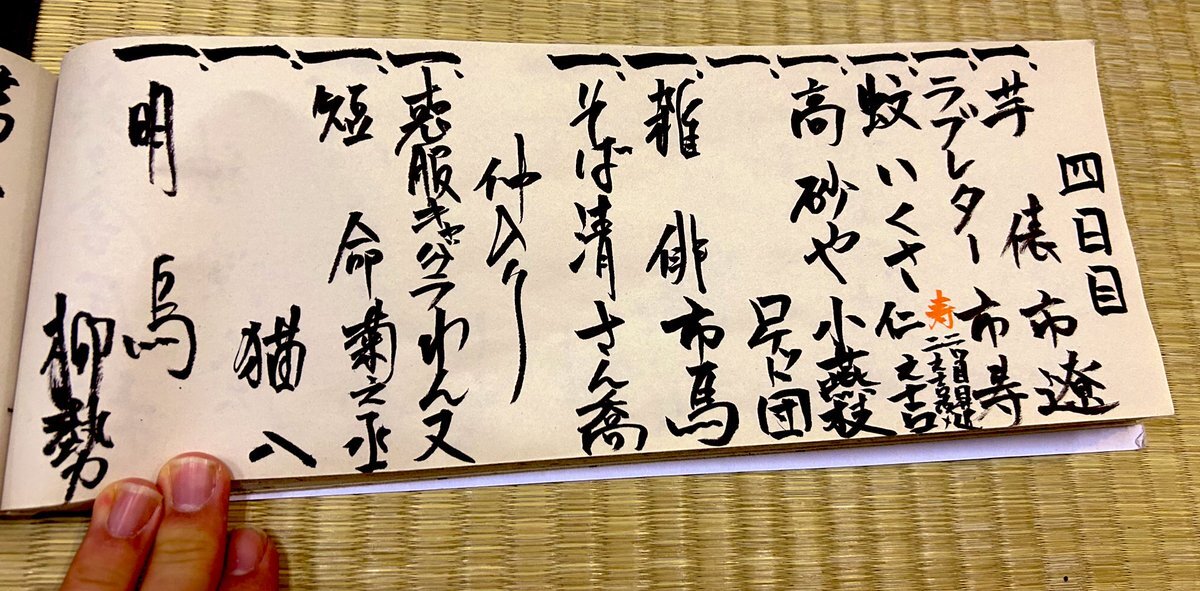 四日目
一、芋俵 市遼
一、ラブレター 市寿
寿 二ツ目昇進
一、蚊いくさ 仁之吉
一、高砂や 小燕枝
一、ロケット団
一、雑俳 市馬
一、そば清 さん喬
仲入り
一、喪服キャバクラ わん丈
一、短命 菊之丞
一、猫八
一、明烏
柳勢